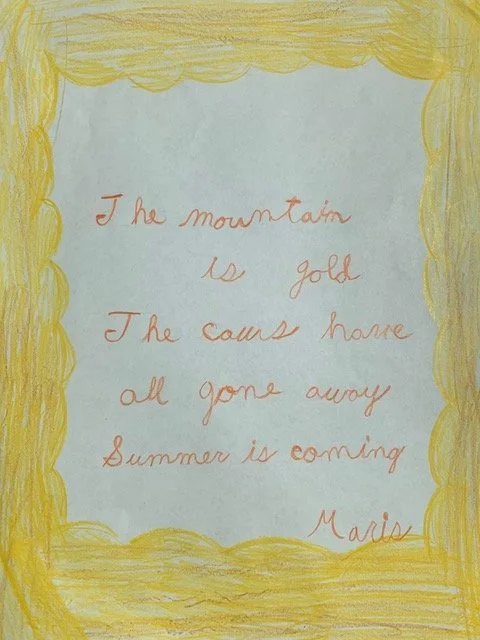 The mountain
is gold
The cows have
all gone away
Summer is coming
Maris